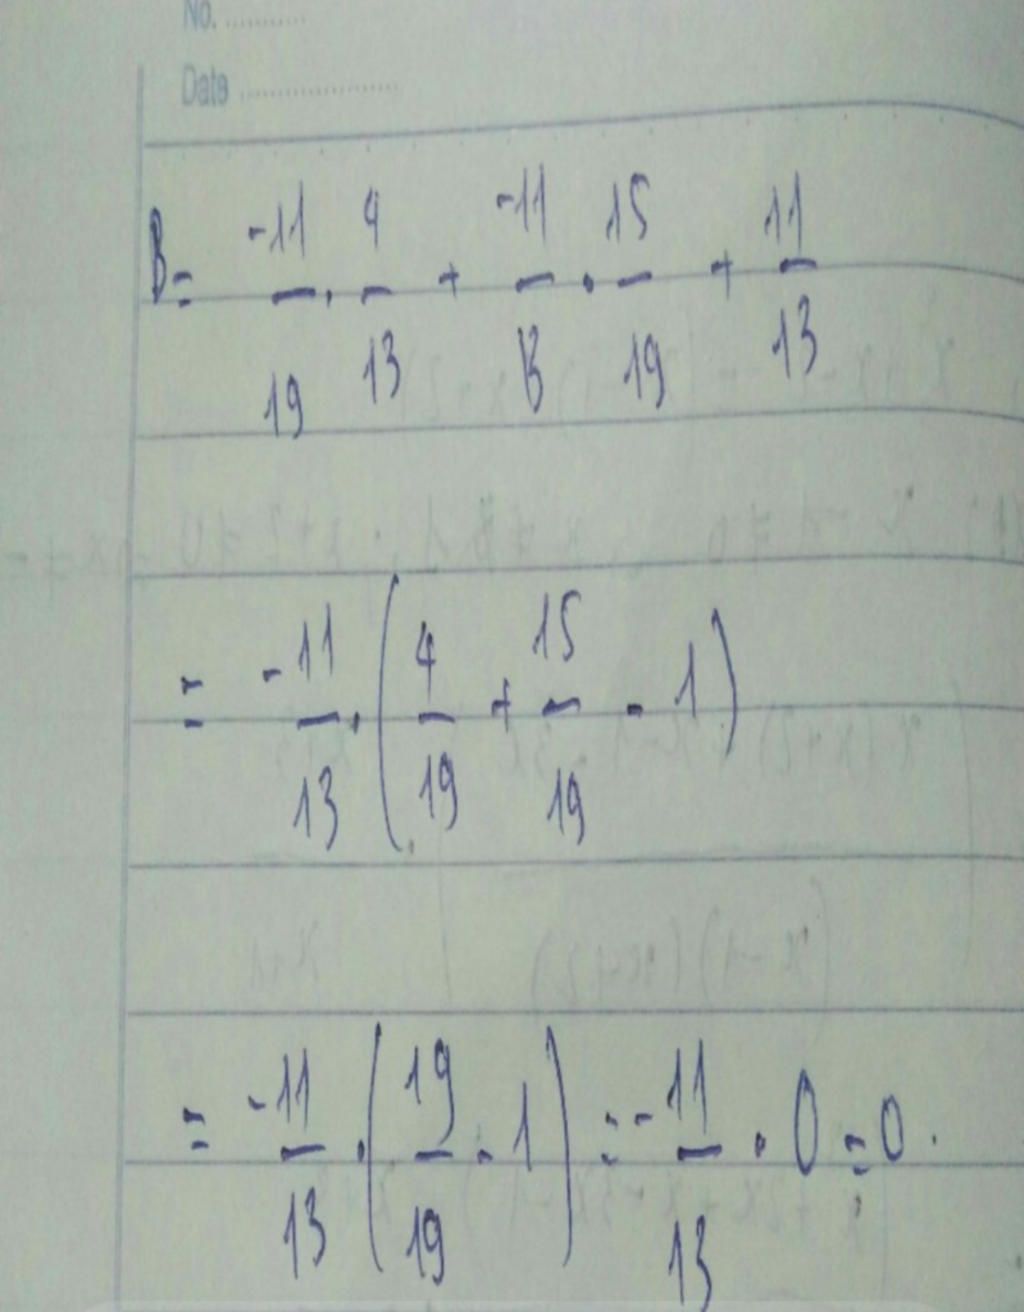 No. ..........
Date ..................
B = -11/19 . 4/13 + -11/13 . 15/19 + 11/13
= -11/13 . (4/19 + 15/19 - 1)
= -11/13 . (19/19 - 1) = -11/13 . 0 = 0.